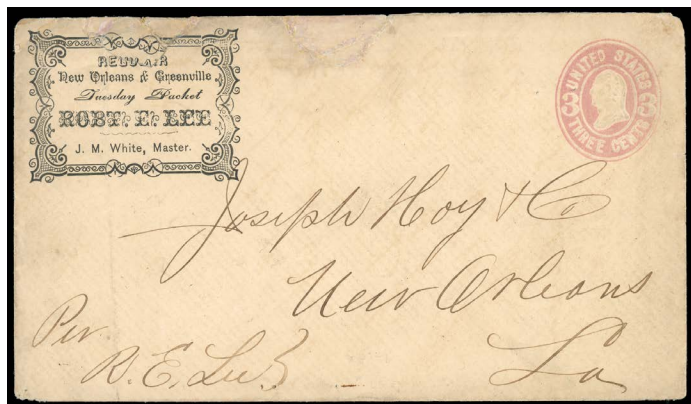 REGULAR
New Orleans & Greenville
Tuesday Packet
ROBT. E. LEE
J. M. White, Master.
UNITED STATES
THREE CENTS
3 3
Joseph Hoy & Co
New Orleans
La
Per
R. E. Lee